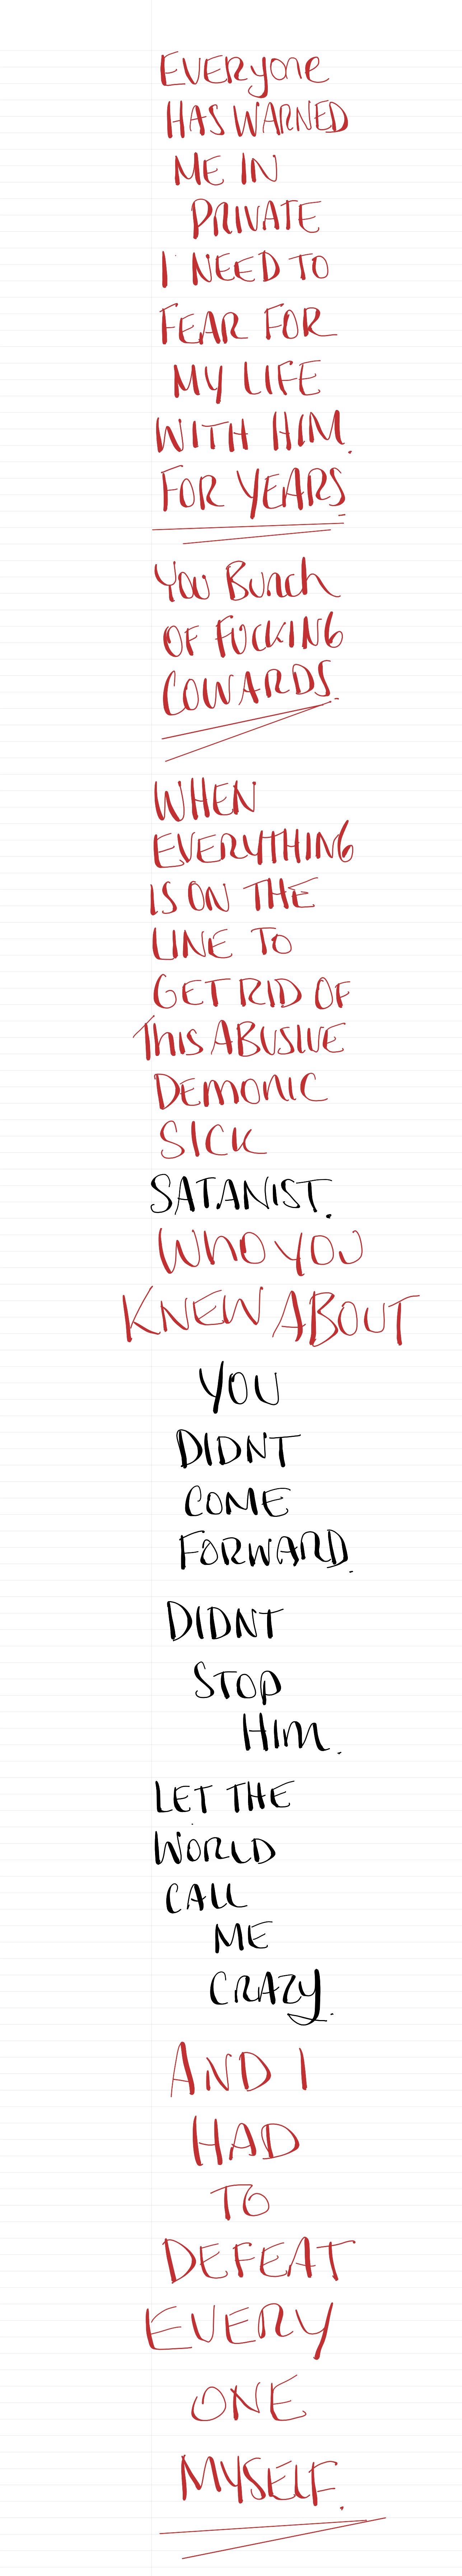 EVERyone
HAS WARNED
ME IN
PRIVATE
I NEED TO
FEAR FOR
MY LIFE
WITH HIM.
FOR YEARS.
You Bunch
OF FUCKING
COWARDS.
WHEN
EVERYTHING
IS ON THE
LINE TO
GET RID OF
This ABUSIVE
DEMONIC
SICK
SATANIST.
WhO YOU
KNEW ABOUT
YOU
DIDNT
COME
FORWARD.
DIDNT
STOP
HIM.
LET THE
WORLD
CALL
ME
CRAZY.
AND I
HAD
TO
DEFEAT
EVERY
ONE
MYSELF.